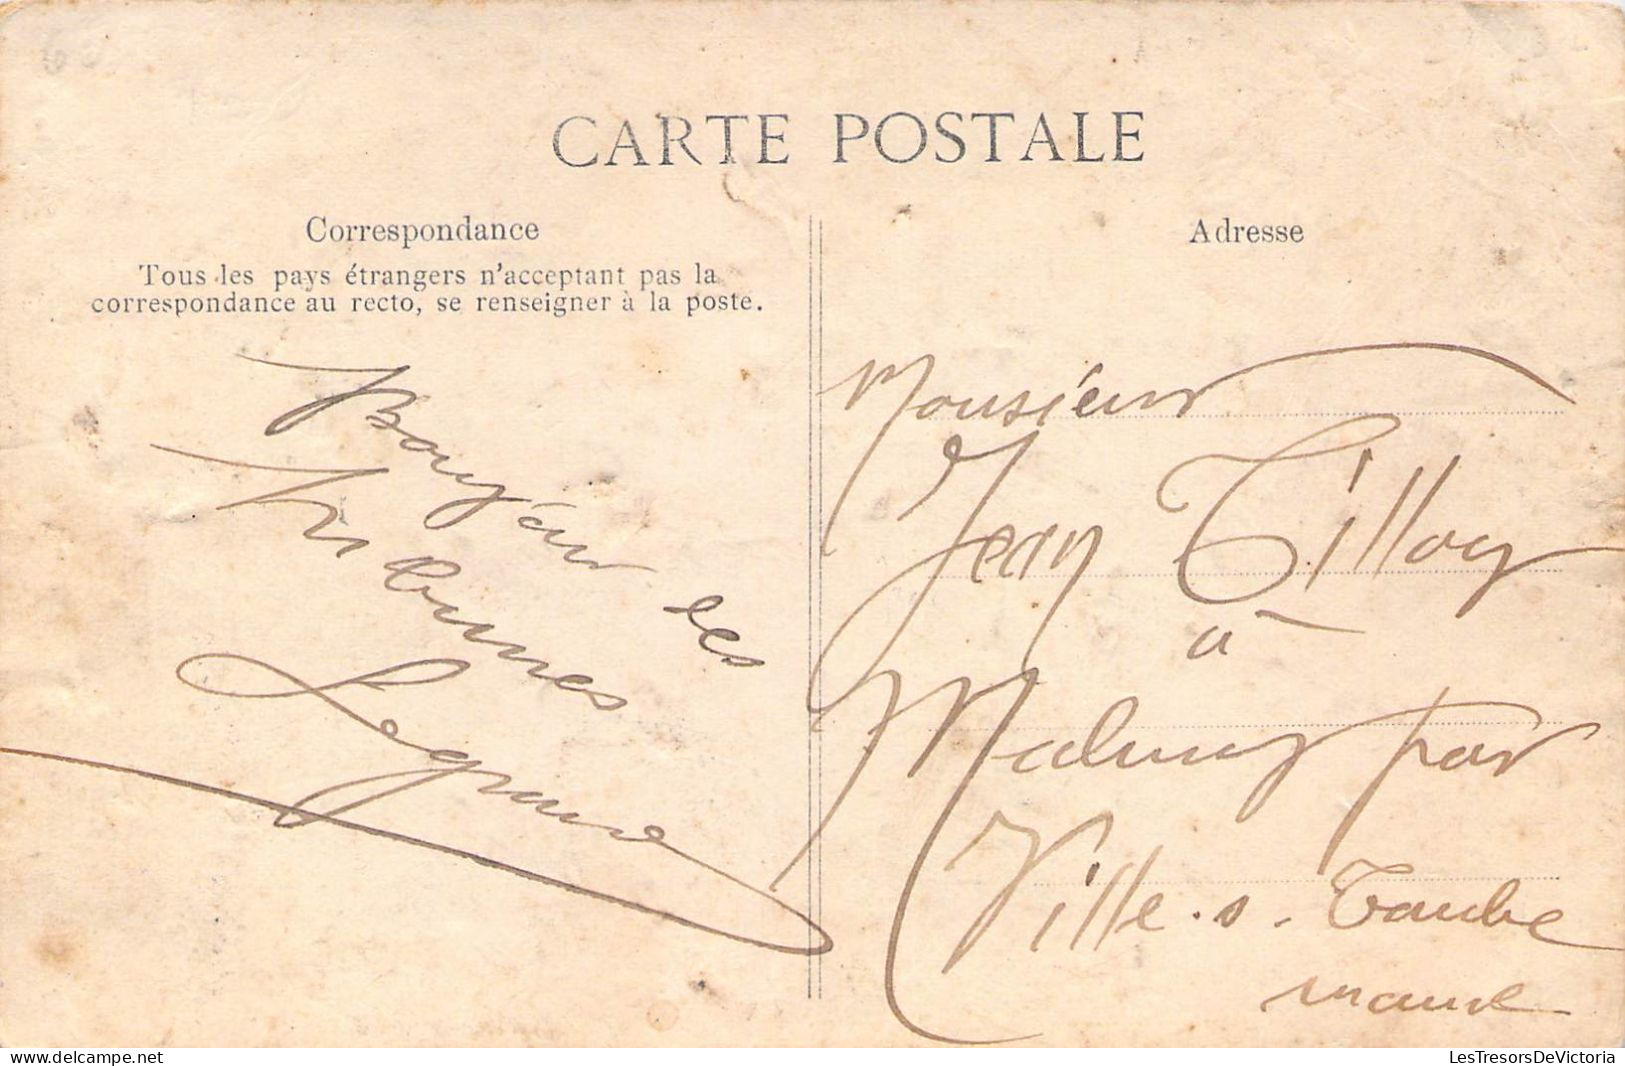 CARTE POSTALE
Correspondance
Tous les pays étrangers n'acceptant pas la
correspondance au recto, se renseigner à la poste.
Bonjour les
Legrand
Adresse
Monsieur
Jean Tilloy
à
Malmy par
Ville-s-Tourbe
marne
LesTresorsDeVictoria